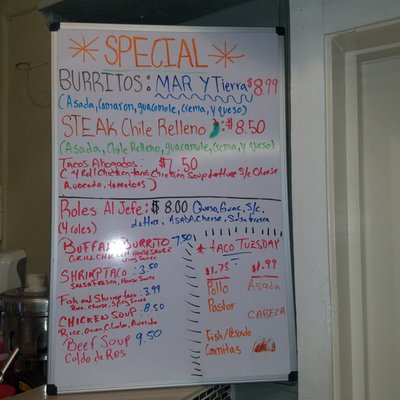 * SPECIAL *
BURRITOS: MAR Y Tierra $8.99
(Asada, Camaron, guacamole, Crema, y queso)
STEAK Chile Relleno: $8.50
(Asada, Chile Relleno, guacamole, Crema, y queso)
Tacos Ahogados: $7.50
(4 Roll Chicken tacos Chicken Soup lettuce S/c Cheese
Avocado, tomatoes)
Roles Al Jefe: $8.00 Queso, Guac, S/c,
(4 roles) lettuce, ASADA, Cheese, Salsa fresca
BUFFALO BURRITO 7.50
GRILL CHICKEN HOUSE SAUCE
SHRIMP TACO: 3.50
SALSA FRESCA, House Sauce
Fish and Shrimp taco: 3.99
Rice, Cheese, Sauce
CHICKEN SOUP: 8.50
Rice, Onion, Cilantro, Avocado
Beef Soup 9.50
Caldo de Res
* tACO TUESDAY
$1.75 $1.99
Pollo Asada
Pastor
CABEZA
Fish/Pescado
Carnitas